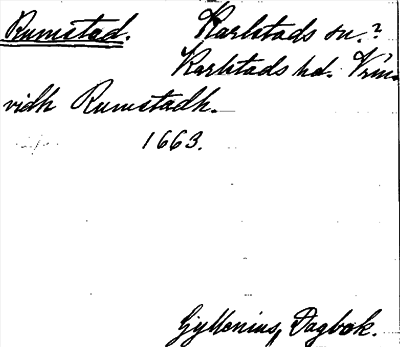 Rumstad. Karlstads sn.?
Karlstads hd. Vrml.
vidh Rumstadh.
1663.
Gyllenius, Dagbok.